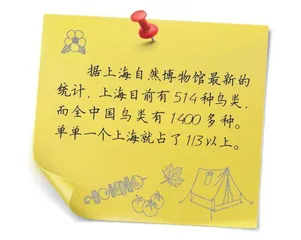 据上海自然博物馆最新的
统计，上海目前有514种鸟类，
而全中国鸟类有1400多种。
单单一个上海就占了1/3以上。